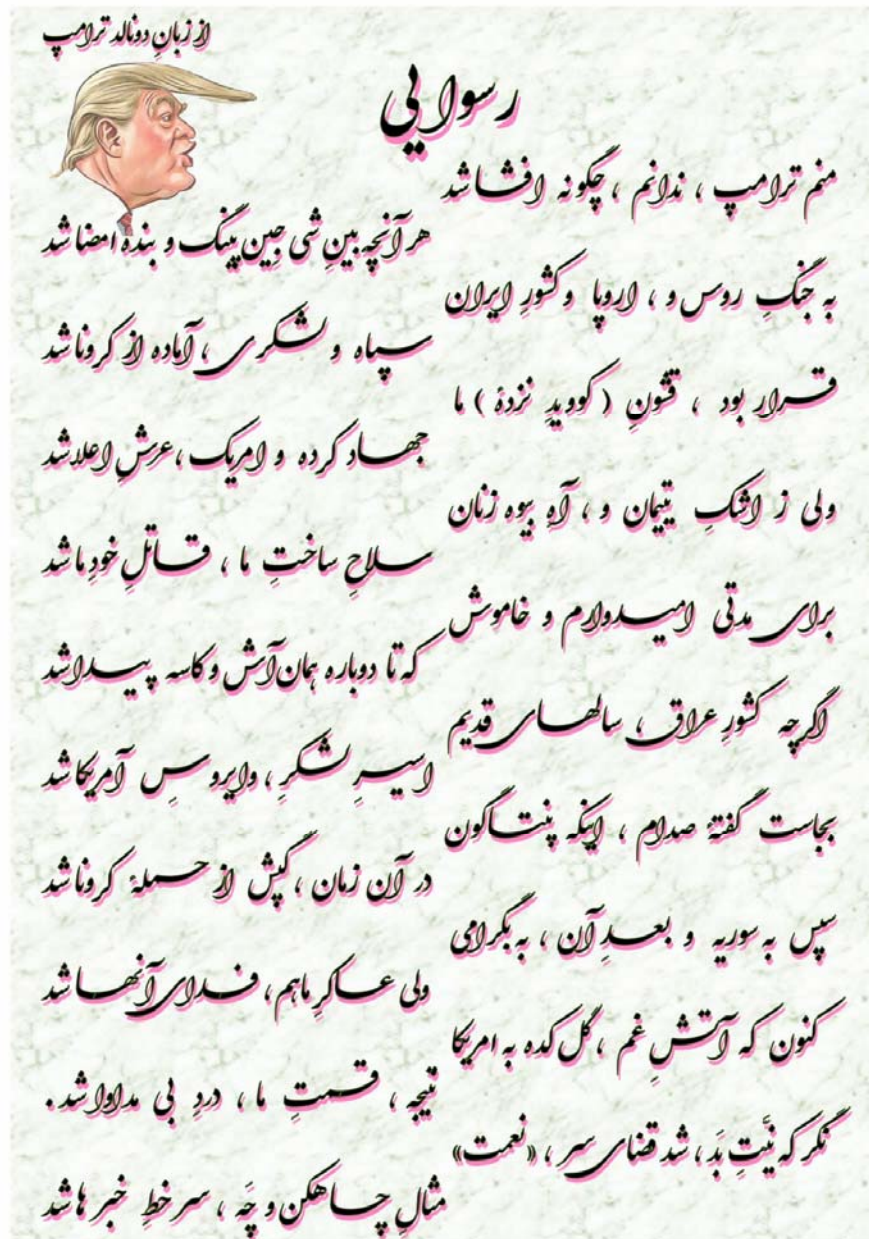 از زبانِ دونالد ترامپ
رسوایی
منم ترامپ ، ندانم ، چگونه افشا شد
هر آنچه بینِ شی جِین پینگ و بنده امضا شد
به جنگِ روس و ، اروپا و کشورِ ایران
سپاه و لشکری ، آماده از کرونا شد
قرار بود ، قشونِ ( کوویدِ نزدهٔ ) ما
جهاد کرده و امریک ، عرشِ اعلا شد
ولی ز اشکِ یتیمان و ، آهِ بیوه زنان
سلاحِ ساختِ ما ، قاتلِ خودِ ما شد
برای مدتی امیدوارم و خاموش
که تا دوباره همان آش و کاسه پیدا شد
اگرچه کشورِ عراق ، سالهای قدیم
اسیرِ لشکرِ ، وایروسِ آمریکا شد
بجاست گفتهٔ صدام ، اینکه پنتاگون
در آن زمان ، کپش از حملهٔ کرونا شد
سپس به سوریه و بعدِ آن ، به بگرامی
ولی عساکرِ ما هم ، فدای آنها شد
کنون که آتشِ غم ، گل کده به امریکا
نتیجه ، قسمتِ ما ، دردِ بی مداوا شد .
نگر که نیَّتِ بَد ، شد قضای سر ، «نعمت»
مثالِ چاهکن و چَه ، سرخطِ خبرها شد